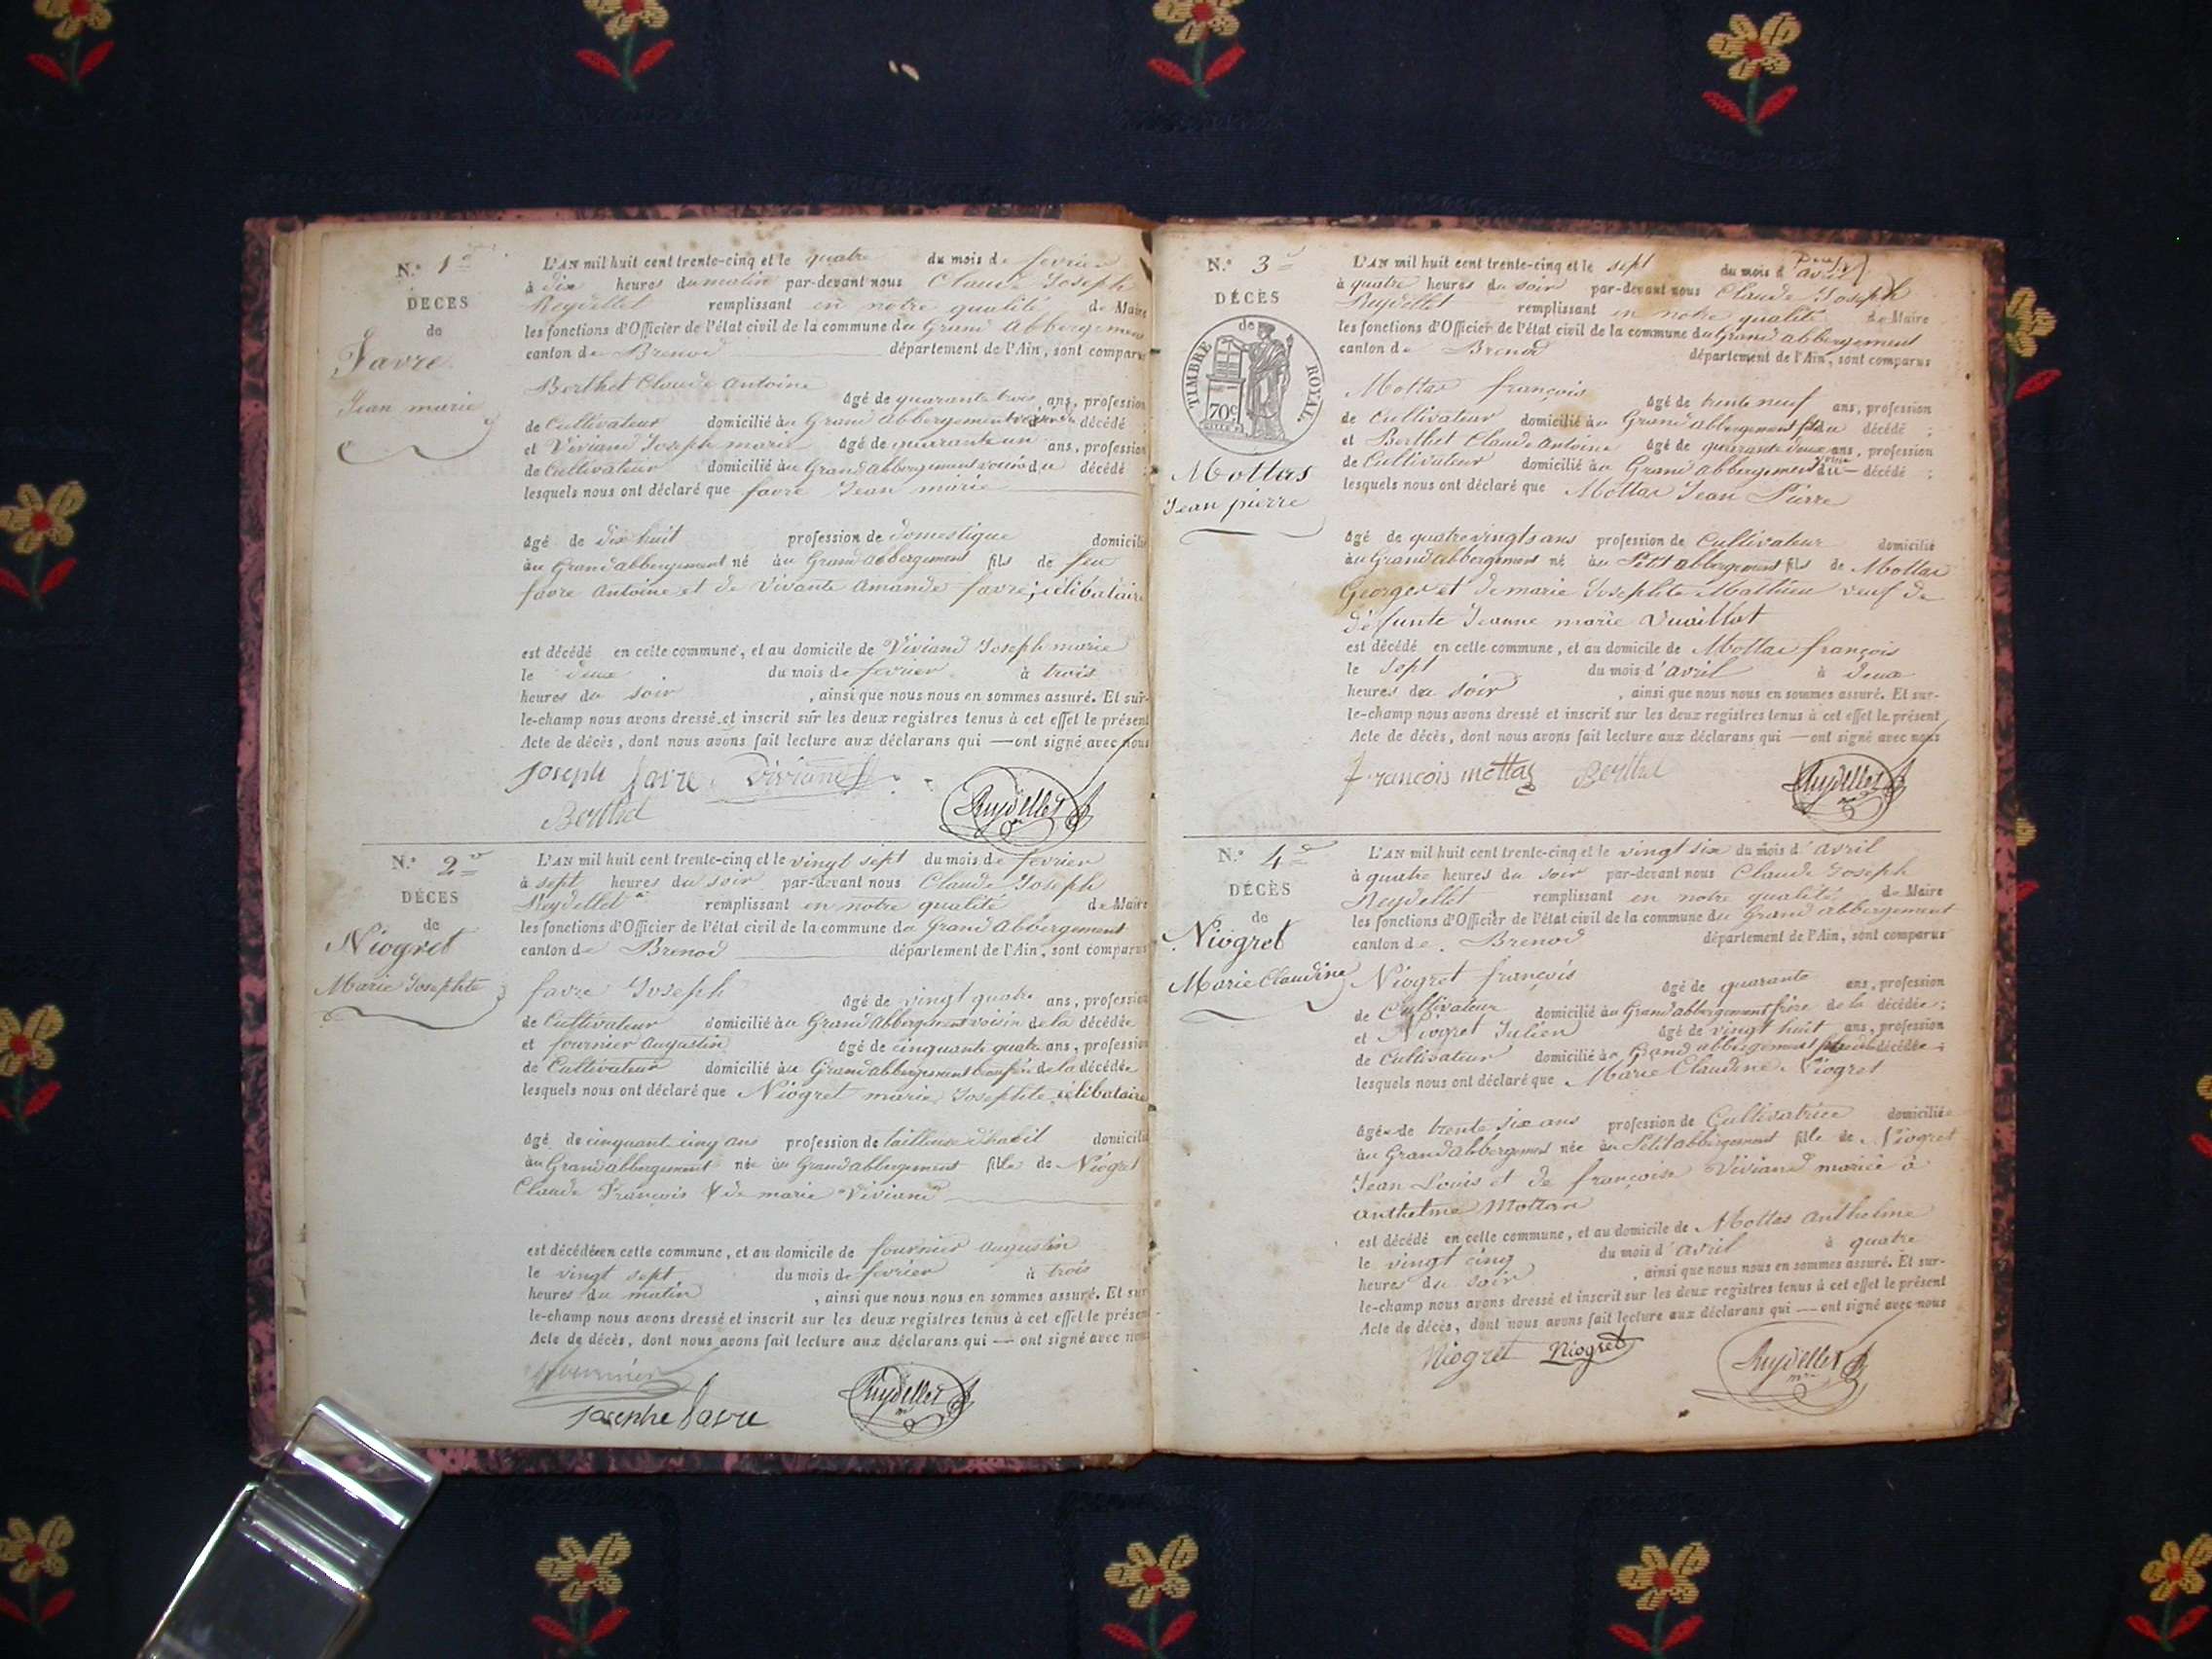 N.º 1
DECES
de
Favre
Jean marie
L'AN mil huit cent trente-cinq et le quatre du mois de fevrier
à dix heures du matin par-devant nous Claude Joseph
Reydellet remplissant en notre qualité de Maire
les fonctions d'Officier de l'état civil de la commune du Grand Abbergement
canton de Brenod département de l'Ain, sont comparus
Berthet Claude Antoine
âgé de quarante trois ans, profession
de Cultivateur domicilié au Grand abbergement décédé ;
et Viviand Joseph marie âgé de quarante un ans, profession
de Cultivateur domicilié au Grand abbergement voisin du décédé ;
lesquels nous ont déclaré que favre Jean marie
âgé de dix huit profession de domestique domicilié
au Grand abbergement né au Grand abbergement fils de feu
favre Antoine et de Vivante Amande favre, célibataire
est décédé en cette commune, et au domicile de Viviand Joseph marie
le deux du mois de fevrier à trois
heures du soir , ainsi que nous nous en sommes assuré. Et sur-
le-champ nous avons dressé et inscrit sur les deux registres tenus à cet effet le présent
Acte de décès, dont nous avons fait lecture aux déclarans qui — ont signé avec nous
joseph favre Viviand
Berthet Reydellet
N.º 2
DÉCES
de
Niogret
Marie Josephte
L'AN mil huit cent trente-cinq et le vingt sept du mois de fevrier
à sept heures du soir par-devant nous Claude Joseph
Reydellet remplissant en notre qualité de Maire
les fonctions d'Officier de l'état civil de la commune du Grand Abbergement
canton de Brenod département de l'Ain, sont comparus
favre Joseph
âgé de vingt quatre ans, profession
de Cultivateur domicilié au Grand Abbergement voisin de la décédée
et fournier Augustin âgé de cinquante quatre ans, profession
de Cultivateur domicilié au Grand abbergement beaufrère de la décédée
lesquels nous ont déclaré que Niogret marie Josephte célibataire
âgé de cinquant cinq ans profession de tailleuse d'habit domicilié
au Grand abbergement née au Grand abbergement fille de Niogret
Claude François & de marie Viviand
est décédée en cette commune, et au domicile de fournier Augustin
le vingt sept du mois de fevrier à trois
heures du matin , ainsi que nous nous en sommes assuré. Et sur
le-champ nous avons dressé et inscrit sur les deux registres tenus à cet effet le présent
Acte de décès, dont nous avons fait lecture aux déclarans qui — ont signé avec nous
fournier
josephe favre Reydellet
N.º 3
DÉCÈS
de
TIMBRE ROYAL
70c
Mottas
Jean pierre
L'AN mil huit cent trente-cinq et le sept du mois d'avril
à quatre heures du soir par-devant nous Claude Joseph
Reydellet remplissant en notre qualité de Maire
les fonctions d'Officier de l'état civil de la commune du Grand abbergement
canton de Brenod département de l'Ain, sont comparus
Mottas françois
âgé de trente neuf ans, profession
de Cultivateur domicilié au Grand Abbergement fils du décédé ;
et Berthet Claude Antoine âgé de quarante deux ans, profession
de Cultivateur domicilié au Grand abbergement voisin du — décédé ;
lesquels nous ont déclaré que Mottas Jean Pierre
âgé de quatre vingts ans profession de Cultivateur domicilié
au Grand abbergement né au Petit abbergement fils de Mottas
Georges et de marie Josephte Mathieu veuf de
défunte Jeanne marie Vuaillat
est décédé en cette commune, et au domicile de Mottas françois
le sept du mois d'avril à deux
heures du soir , ainsi que nous nous en sommes assuré. Et sur-
le-champ nous avons dressé et inscrit sur les deux registres tenus à cet effet le présent
Acte de décès, dont nous avons fait lecture aux déclarans qui — ont signé avec nous
françois mottas Berthet Reydellet
N.º 4
DÉCÈS
de
Niogret
Marie Claudine
L'AN mil huit cent trente-cinq et le vingt six du mois d'avril
à quatre heures du soir par-devant nous Claude Joseph
Reydellet remplissant en notre qualité de Maire
les fonctions d'Officier de l'état civil de la commune du Grand abbergement
canton de Brenod département de l'Ain, sont comparus
Niogret françois
âgé de quarante ans, profession
de Cultivateur domicilié au Grand abbergement frère de la décédée ;
et Niogret Julien âgé de vingt huit ans, profession
de Cultivateur domicilié au Grand abbergement décédée ;
lesquels nous ont déclaré que Marie Claudine Niogret
âgée de trente six ans profession de Cultivatrice domiciliée
au Grand abbergement née au Petit abbergement fille de Niogret
Jean Louis et de françoise Viviand mariée à
anthelme Mottas
est décédé en cette commune, et au domicile de Mottas Anthelme
le vingt cinq du mois d'avril à quatre
heures du soir , ainsi que nous nous en sommes assuré. Et sur-
le-champ nous avons dressé et inscrit sur les deux registres tenus à cet effet le présent
Acte de décès, dont nous avons fait lecture aux déclarans qui — ont signé avec nous
Niogret Niogret Reydellet